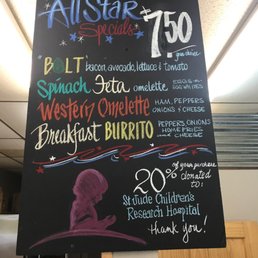 All Star
Specials
7.50
your choice
BOLT bacon, avocado, lettuce & tomato
Spinach Feta omelette
Western Omelette HAM, PEPPERS
ONIONS & CHEESE
Breakfast BURRITO PEPPERS, ONIONS
HOME FRIES
and CHEESE
20% of your purchase
donated to:
St Jude Children's
Research Hospital
thank you!